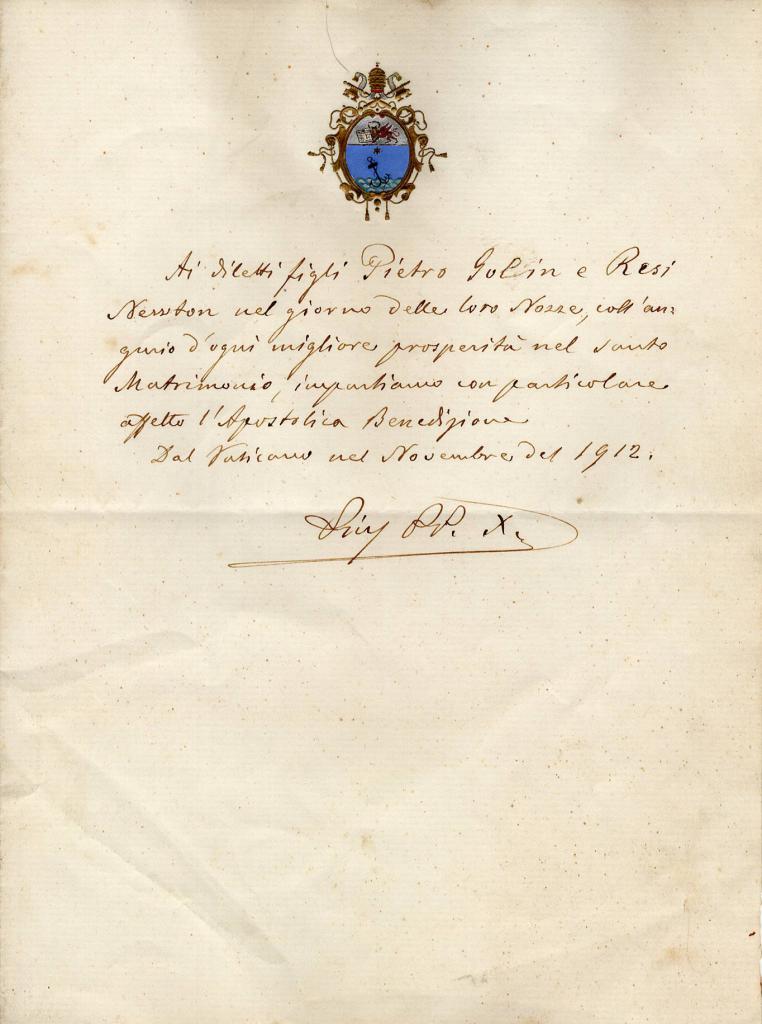 Ai diletti figli Pietro Golin e Resi
Newton nel giorno delle loro Nozze, coll'au=
gurio d'ogni migliore prosperità nel santo
Matrimonio, impartiamo con particolare
affetto l'Apostolica Benedizione
Dal Vaticano nel Novembre del 1912.
Pius PP. X.